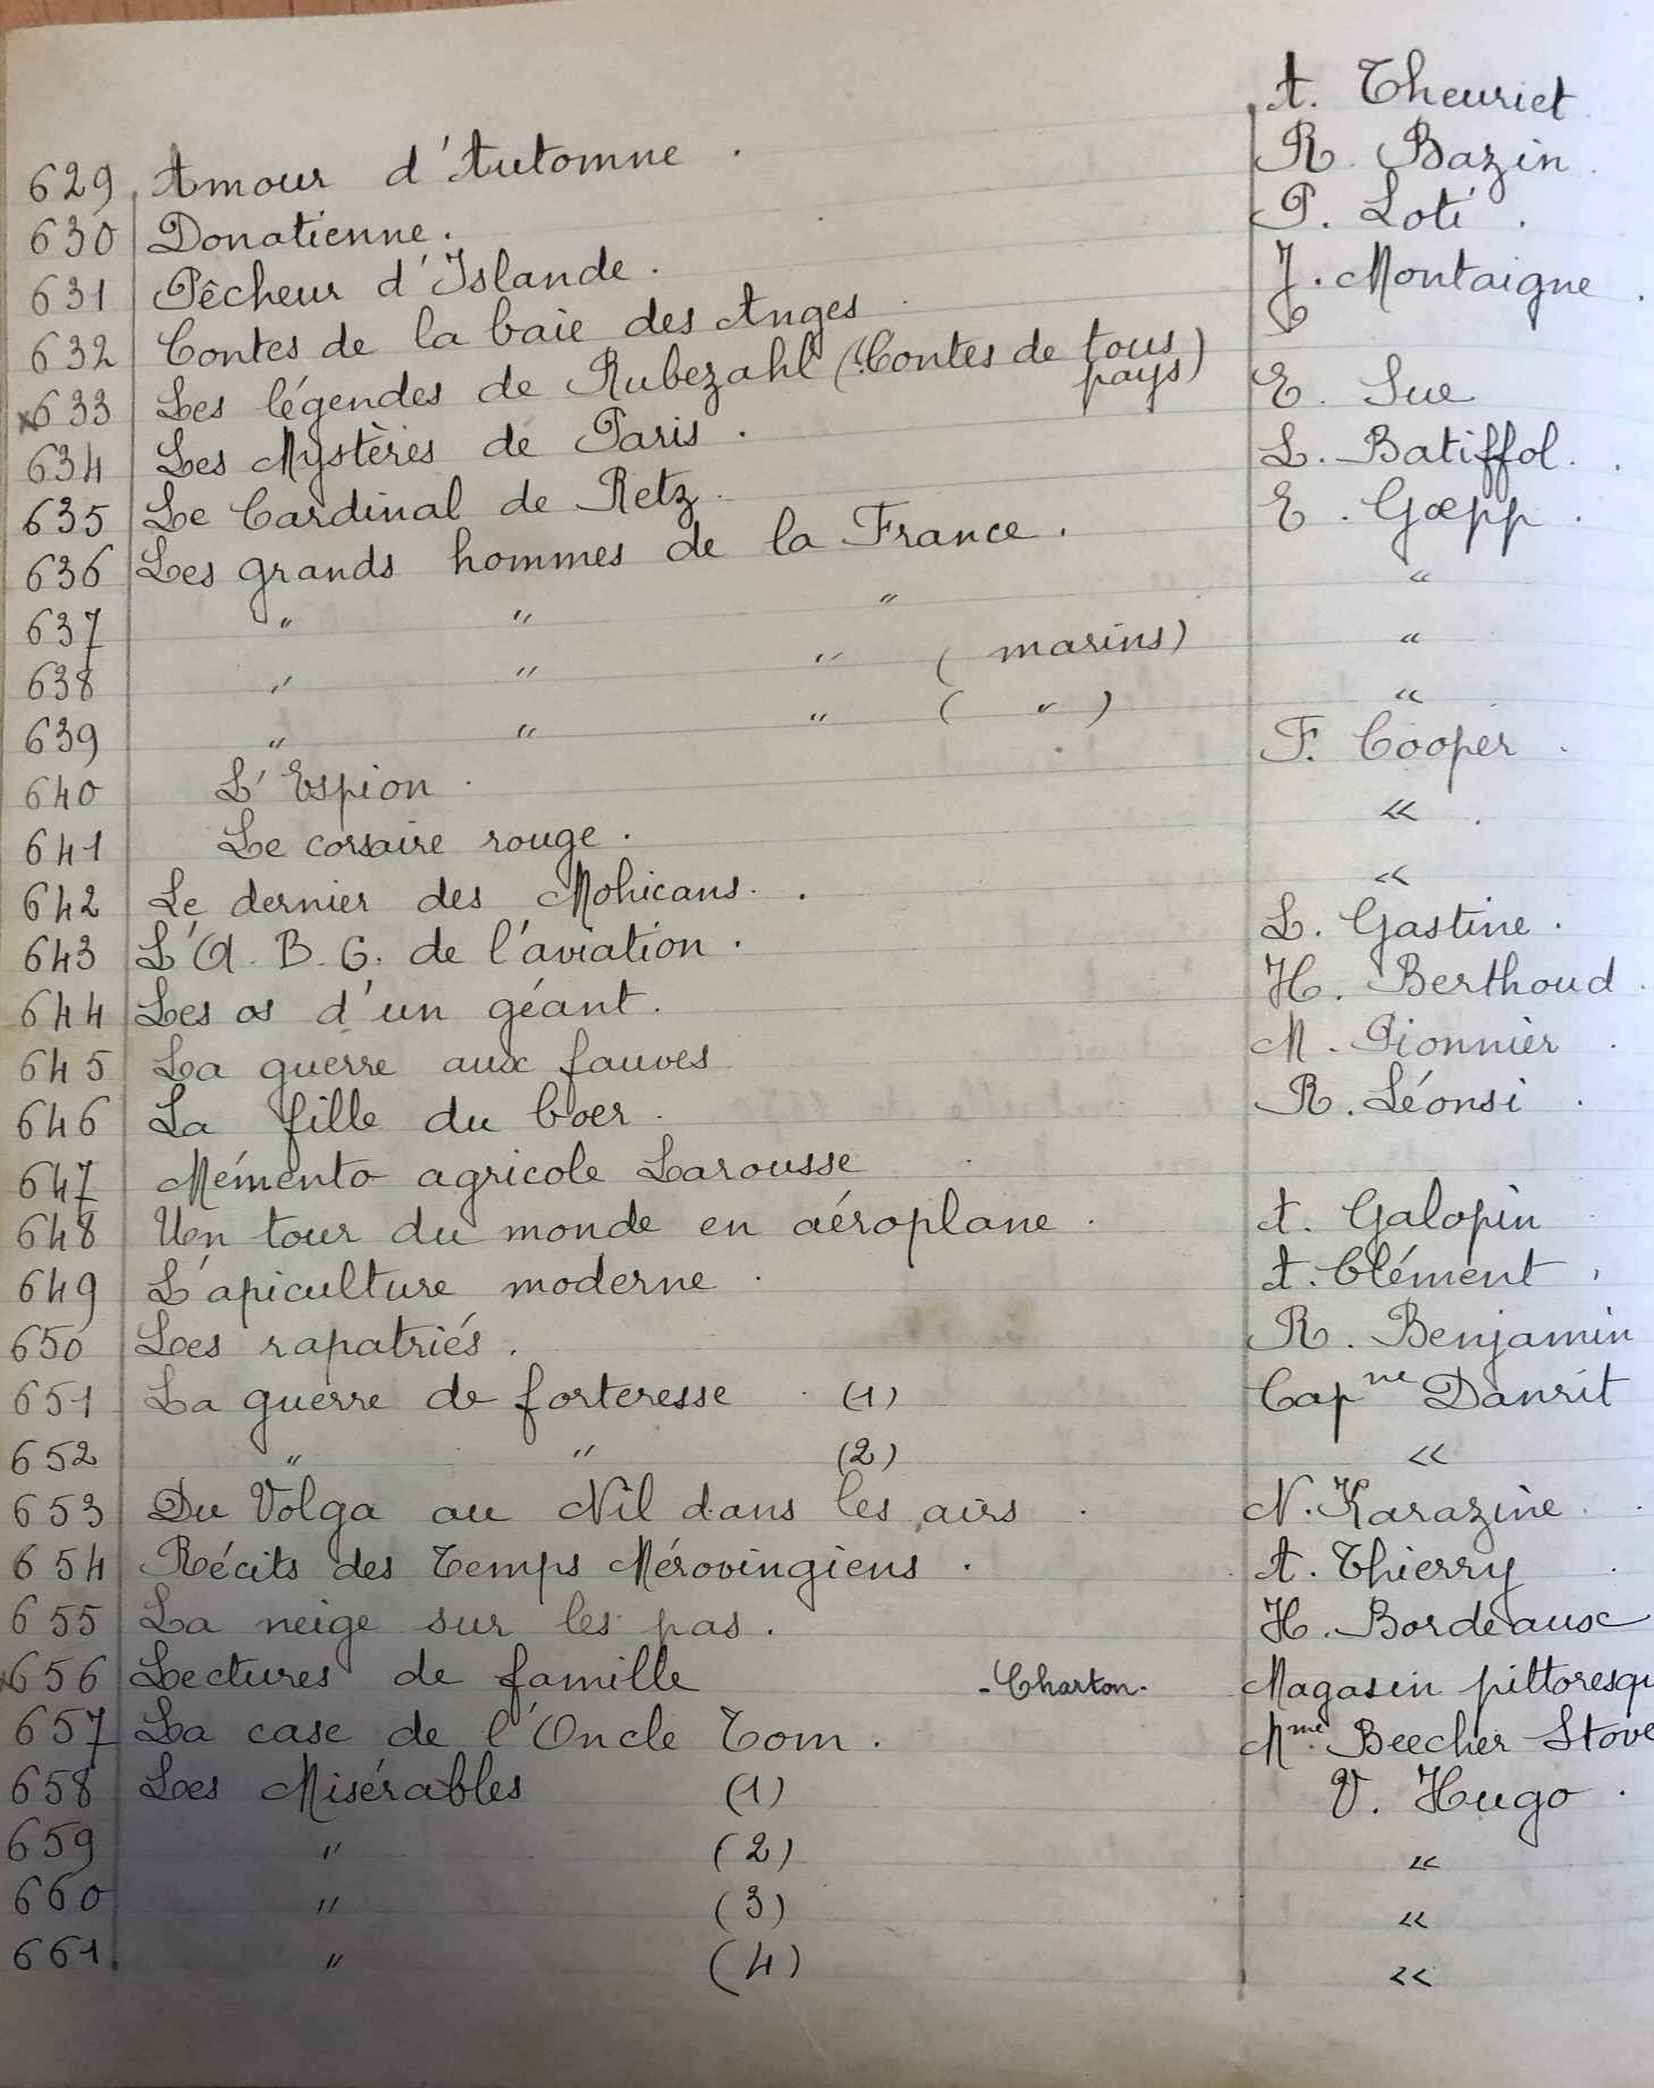 629 Amour d'Automne. A. Theuriet
630 Donatienne. R. Bazin
631 Pêcheur d'Islande. P. Loti.
632 Contes de la baie des Anges. J. Montaigne.
x633 Les légendes de Rubezahl (Contes de tous pays)
634 Les Mystères de Paris. E. Sue
635 Le Cardinal de Retz. L. Batiffol.
636 Les grands hommes de la France. E. Gœpp.
637 " " " "
638 " " " (marins) "
639 " " " ( " ) "
640 L'Espion. F. Cooper.
641 Le corsaire rouge. "
642 Le dernier des Mohicans. "
643 L'A. B. C. de l'aviation. L. Gastine.
644 Les os d'un géant. H. Berthoud.
645 La guerre aux fauves M. Pionnier.
646 La fille du boer. R. Léonsi.
647 Mémento agricole Larousse
648 Un tour du monde en aéroplane. A. Galopin
649 L'apiculture moderne. A. Clément.
650 Les rapatriés. R. Benjamin
651 La guerre de forteresse (1) Capne Danrit
652 " " (2) "
653 Du Volga au Nil dans les airs. N. Karazine.
654 Récits des Temps Mérovingiens. A. Thierry
655 La neige sur les pas. H. Bordeaux
x656 Lectures de famille - Charton - Magasin pittoresqu
657 La case de l'Oncle Tom. Mme Beecher Stove
658 Les Misérables (1) V. Hugo.
659 " (2) "
660 " (3) "
661. " (4) "